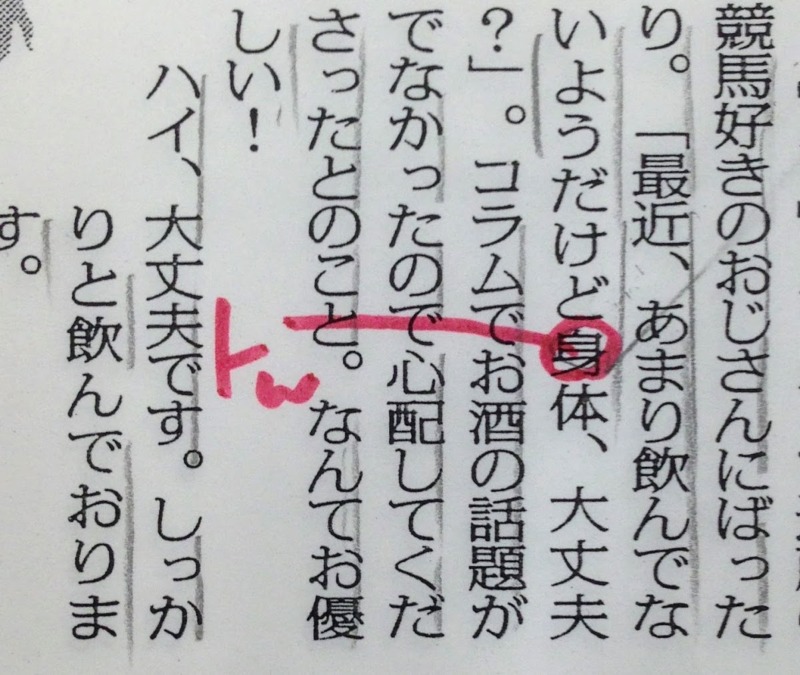 競馬好きのおじさんにばった
り。「最近、あまり飲んでな
いようだけど身体、大丈夫
？」。コラムでお酒の話題が
でなかったので心配してくだ
さったとのこと。なんてお優
しい！
ハイ、大丈夫です。しっか
りと飲んでおりま
す。
トw